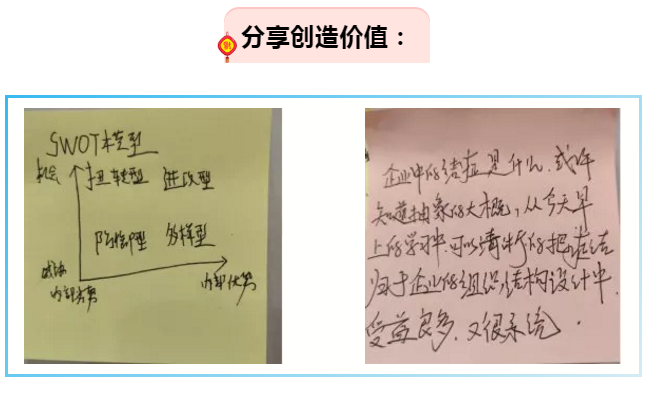 分享创造价值：
SWOT模型
机会
扭转型 进攻型
防御型 多样型
威胁
内部劣势
内部优势
企业中的结症是什么，或许
知道抽象的大概，从今天早
上的学习中，可以清晰的把症结
归于企业的组织结构设计中，
受益良多，又很系统．